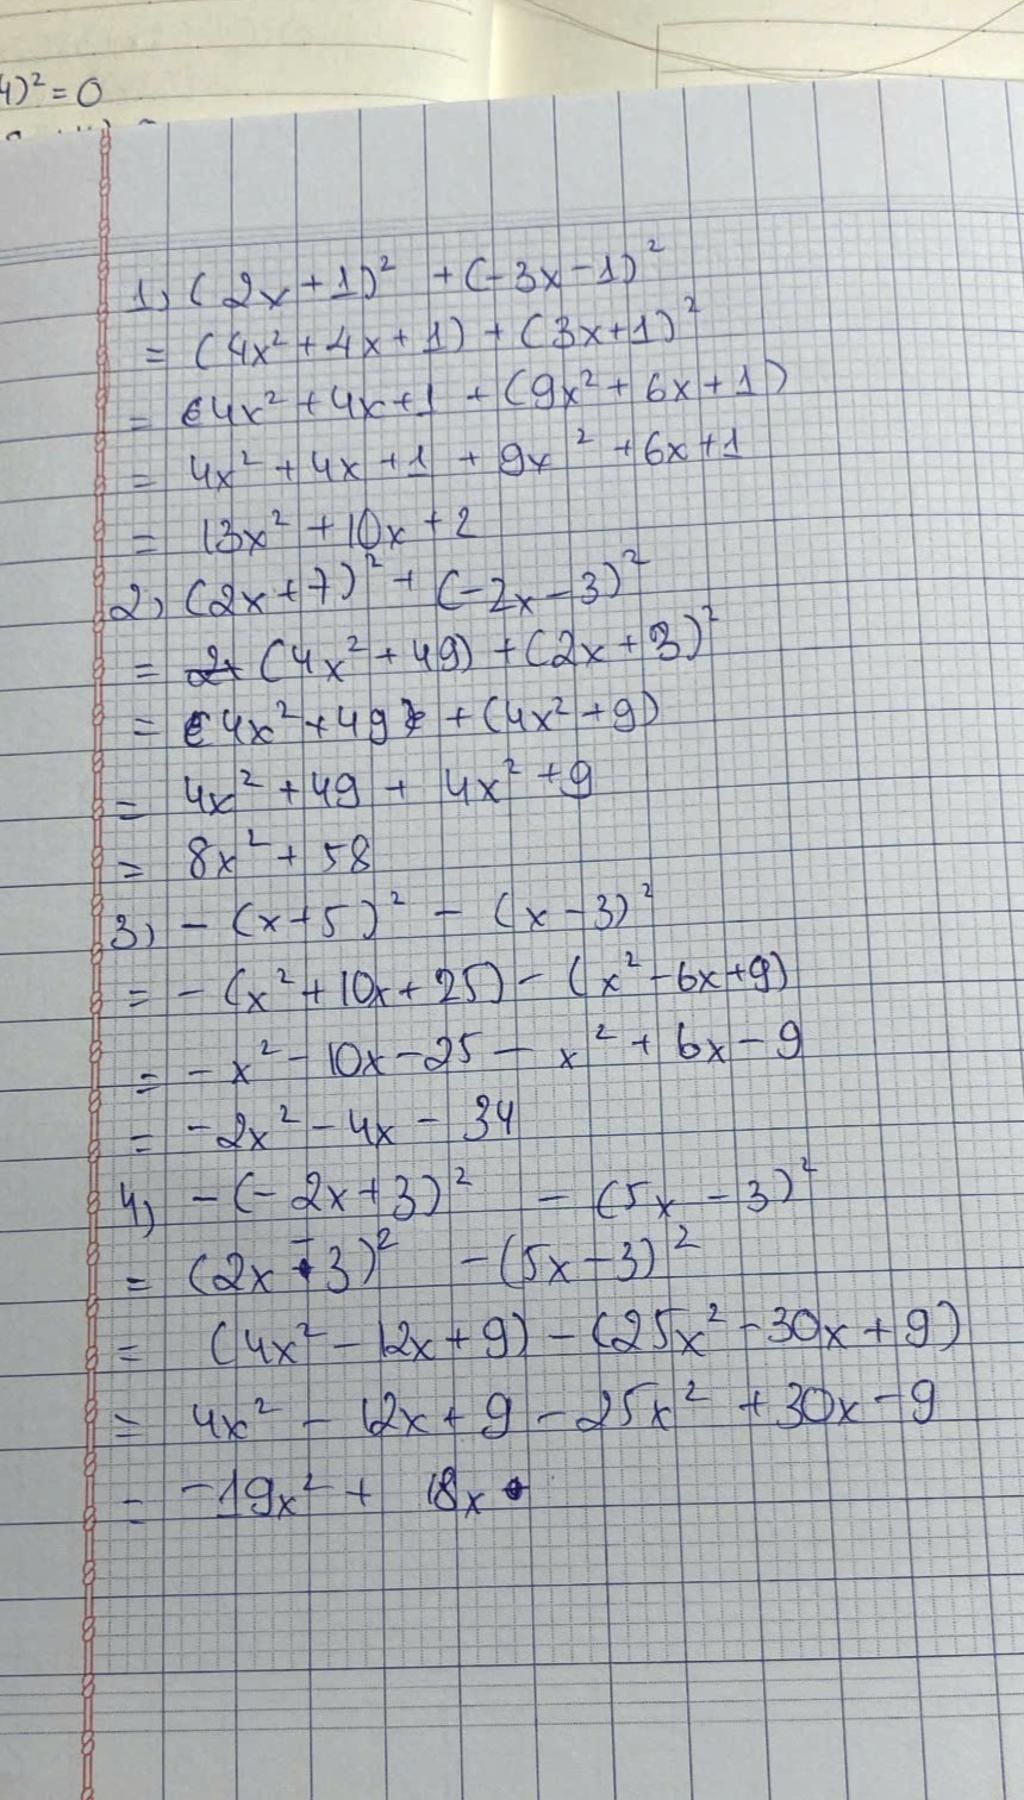 4)² = 0
1) (2x + 1)² + (-3x - 1)²
= (4x² + 4x + 1) + (3x + 1)²
= 4x² + 4x + 1 + (9x² + 6x + 1)
= 4x² + 4x + 1 + 9x² + 6x + 1
= 13x² + 10x + 2
2) (2x + 7)² + (-2x - 3)²
= (4x² + 49) + (2x + 3)²
= 4x² + 49 + (4x² + 9)
= 4x² + 49 + 4x² + 9
= 8x² + 58
3) - (x + 5)² - (x - 3)²
= - (x² + 10x + 25) - (x² - 6x + 9)
= - x² - 10x - 25 - x² + 6x - 9
= - 2x² - 4x - 34
4) - (- 2x + 3)² - (5x - 3)²
= (2x - 3)² - (5x - 3)²
= (4x² - 12x + 9) - (25x² - 30x + 9)
= 4x² - 12x + 9 - 25x² + 30x - 9
= - 19x² + 18x